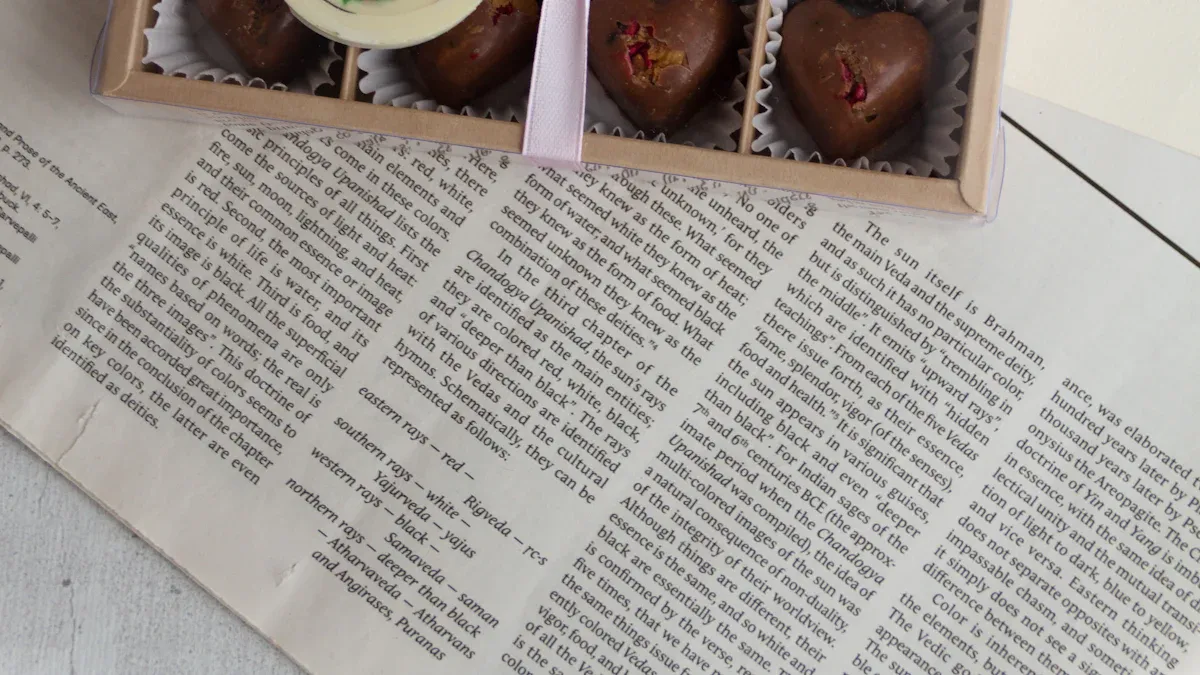 and Prose of the Ancient East,
p. 273
VI, 4, 5-7,
come the sources of light and heat:
principles of all things. First
Chandogya Upanishad lists the
is come in these colors.
main elements and
red, white,
there
fire, sun, moon, lightning, and heat,
and their common essence or image
is red. Second, the most important
principle of life is water, and its
essence is white. Third is food, and
its image is black. All the superficial
qualities of phenomena are only
"names based on words; the real is
in three images". This doctrine of
the substantiality of colors seems to
have been accorded great importance,
since in the conclusion of the chapter
on key colors, the latter are even
identified as deities.
the unheard, the
unknown', for they
through these. What seemed
they knew as the form of heat;
what seemed white they knew as the
form of water; and what seemed black
they knew as the form of food. What
seemed unknown they knew as the
combination of these deities."4
In the third chapter of the
Chandogya Upanishad, the sun's rays
are identified as the main entities;
they are colored red, white, black,
and "deeper than black". The rays
of various directions are identified
with the Vedas and the cultural
hymns. Schematically, they can be
represented as follows:
eastern rays – red –
Rigveda – rc-s
southern rays – white –
Yajurveda – yajus
western rays – black –
Samaveda – saman
northern rays – deeper than black
– Atharvaveda – Atharvans
and Angirases, Puranas
The sun itself is Brahman,
the main Veda and the supreme deity,
and as such it has no particular color,
but is distinguished by "trembling in
the middle". It emits "upward rays"
which are identified with "hidden
teachings". From each of the five Vedas
there issue forth, as their essence,
"fame, splendor, vigor (of the senses)
food and health."5 It is significant that
the sun appears in various guises,
including black and even "deeper
than black". For Indian sages of the
7th and 6th centuries BCE (the approx-
imate period when the Chandogya
Upanishad was compiled), the idea of
multi-colored images of the sun was
a natural consequence of non-duality,
of the integrity of their worldview.
Although things are different, their
essence is the same, and so white and
black are essentially the same. T
is confirmed by the verse, re
five times, that we have
the same things issue f
ently colored Vedas
vigor, food, and
of all the Ve
is the sa
color
ance, was elaborated
hundred years later by
thousand years later by
onysius the Areopagite. The
doctrine of Yin and Yang is imp
in essence, with the same idea of
lectical unity and the mutual trans
tion of light to dark, blue to yellow,
and vice versa. Eastern thinking
does not separate opposites with a
impassable chasm, and someti
it simply does not see a sig
difference between them
Color is inheren
the elements, but
The Vedic go
appearance
The sun